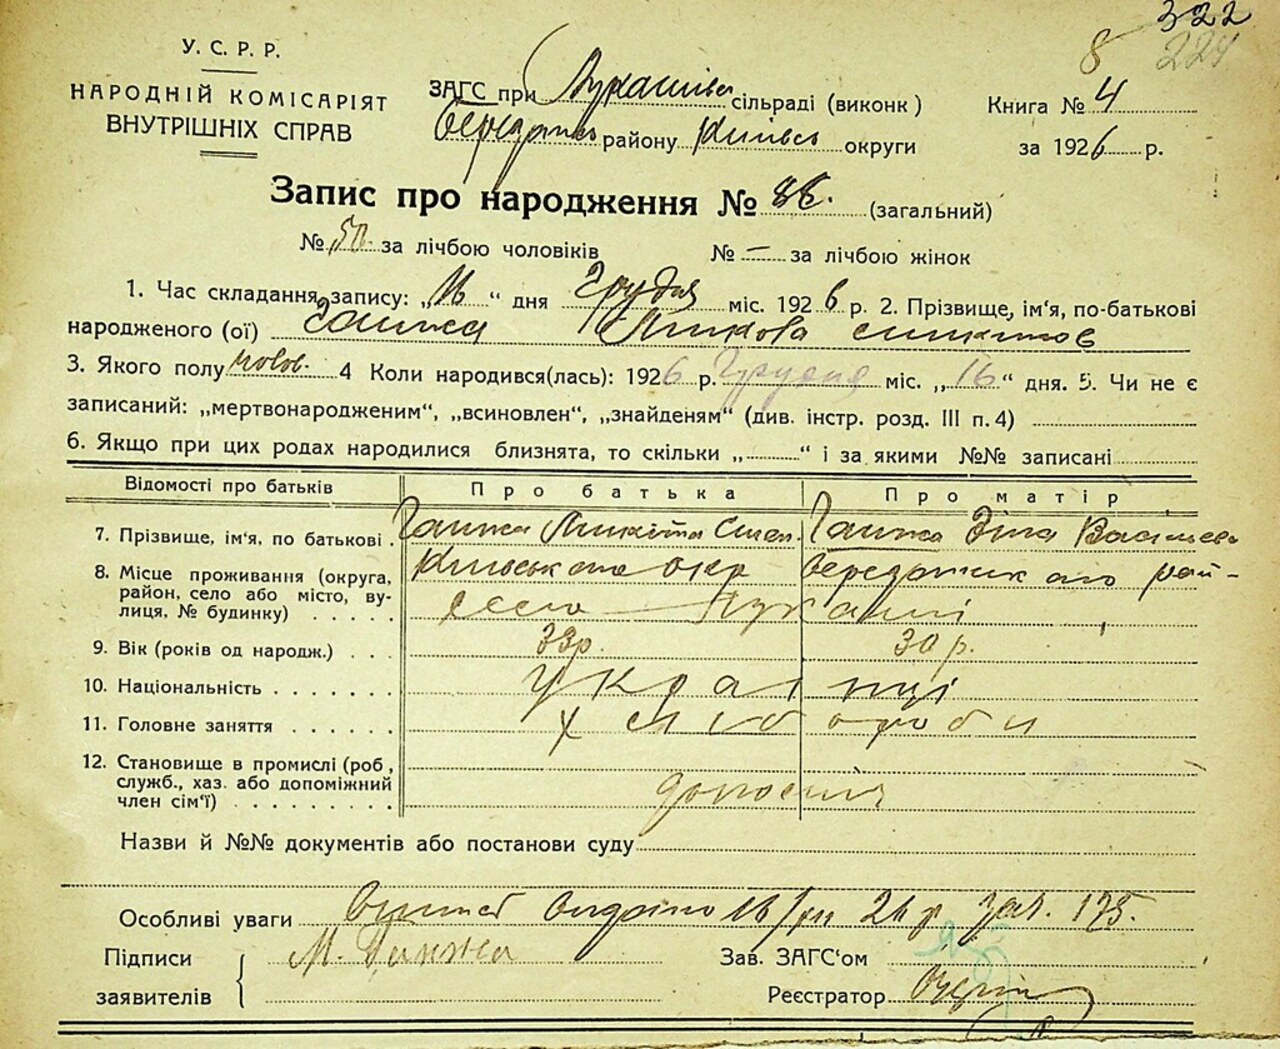 322
8 224
У. С. Р. Р.
НАРОДНІЙ КОМІСАРІЯТ
ВНУТРІШНІХ СПРАВ
ЗАГС при Лукашівс сільраді (виконк)
району Київсь округи
Книга № 4
за 1926 р.
Запис про народження № 86. (загальний)
№ 50. за лічбою чоловіків № — за лічбою жінок
1. Час складання запису: „16“ дня Грудня міс. 1926 р. 2. Прізвище, ім'я, по-батькові
народженого (ої) Ганжа Микола
3. Якого полу чолов. 4 Коли народився(лась): 1926 р. Грудня міс. „16“ дня. 5. Чи не є
записаний: „мертвонародженим“, „всиновлен“, „знайденям“ (див. інстр. розд. III п. 4)
6. Якщо при цих родах народилися близнята, то скільки „ “ і за якими №№ записані
Відомості про батьків Про батька Про матір
7. Прізвище, ім'я, по батькові Ганжа Микита Ганжа Зіна
8. Місце проживання (округа,
район, село або місто, ву-
лиця, № будинку) село Лукаші
9. Вік (років од народж.) 33р. 30 р.
10. Національність Українці
11. Головне заняття Хлібороби
12. Становище в промислі (роб,
служб., хаз. або допоміжний
член сім'ї)
Назви й №№ документів або постанови суду
Особливі уваги 26 р 175.
Підписи М. Ганжа Зав. ЗАГС'ом
заявителів Реєстратор